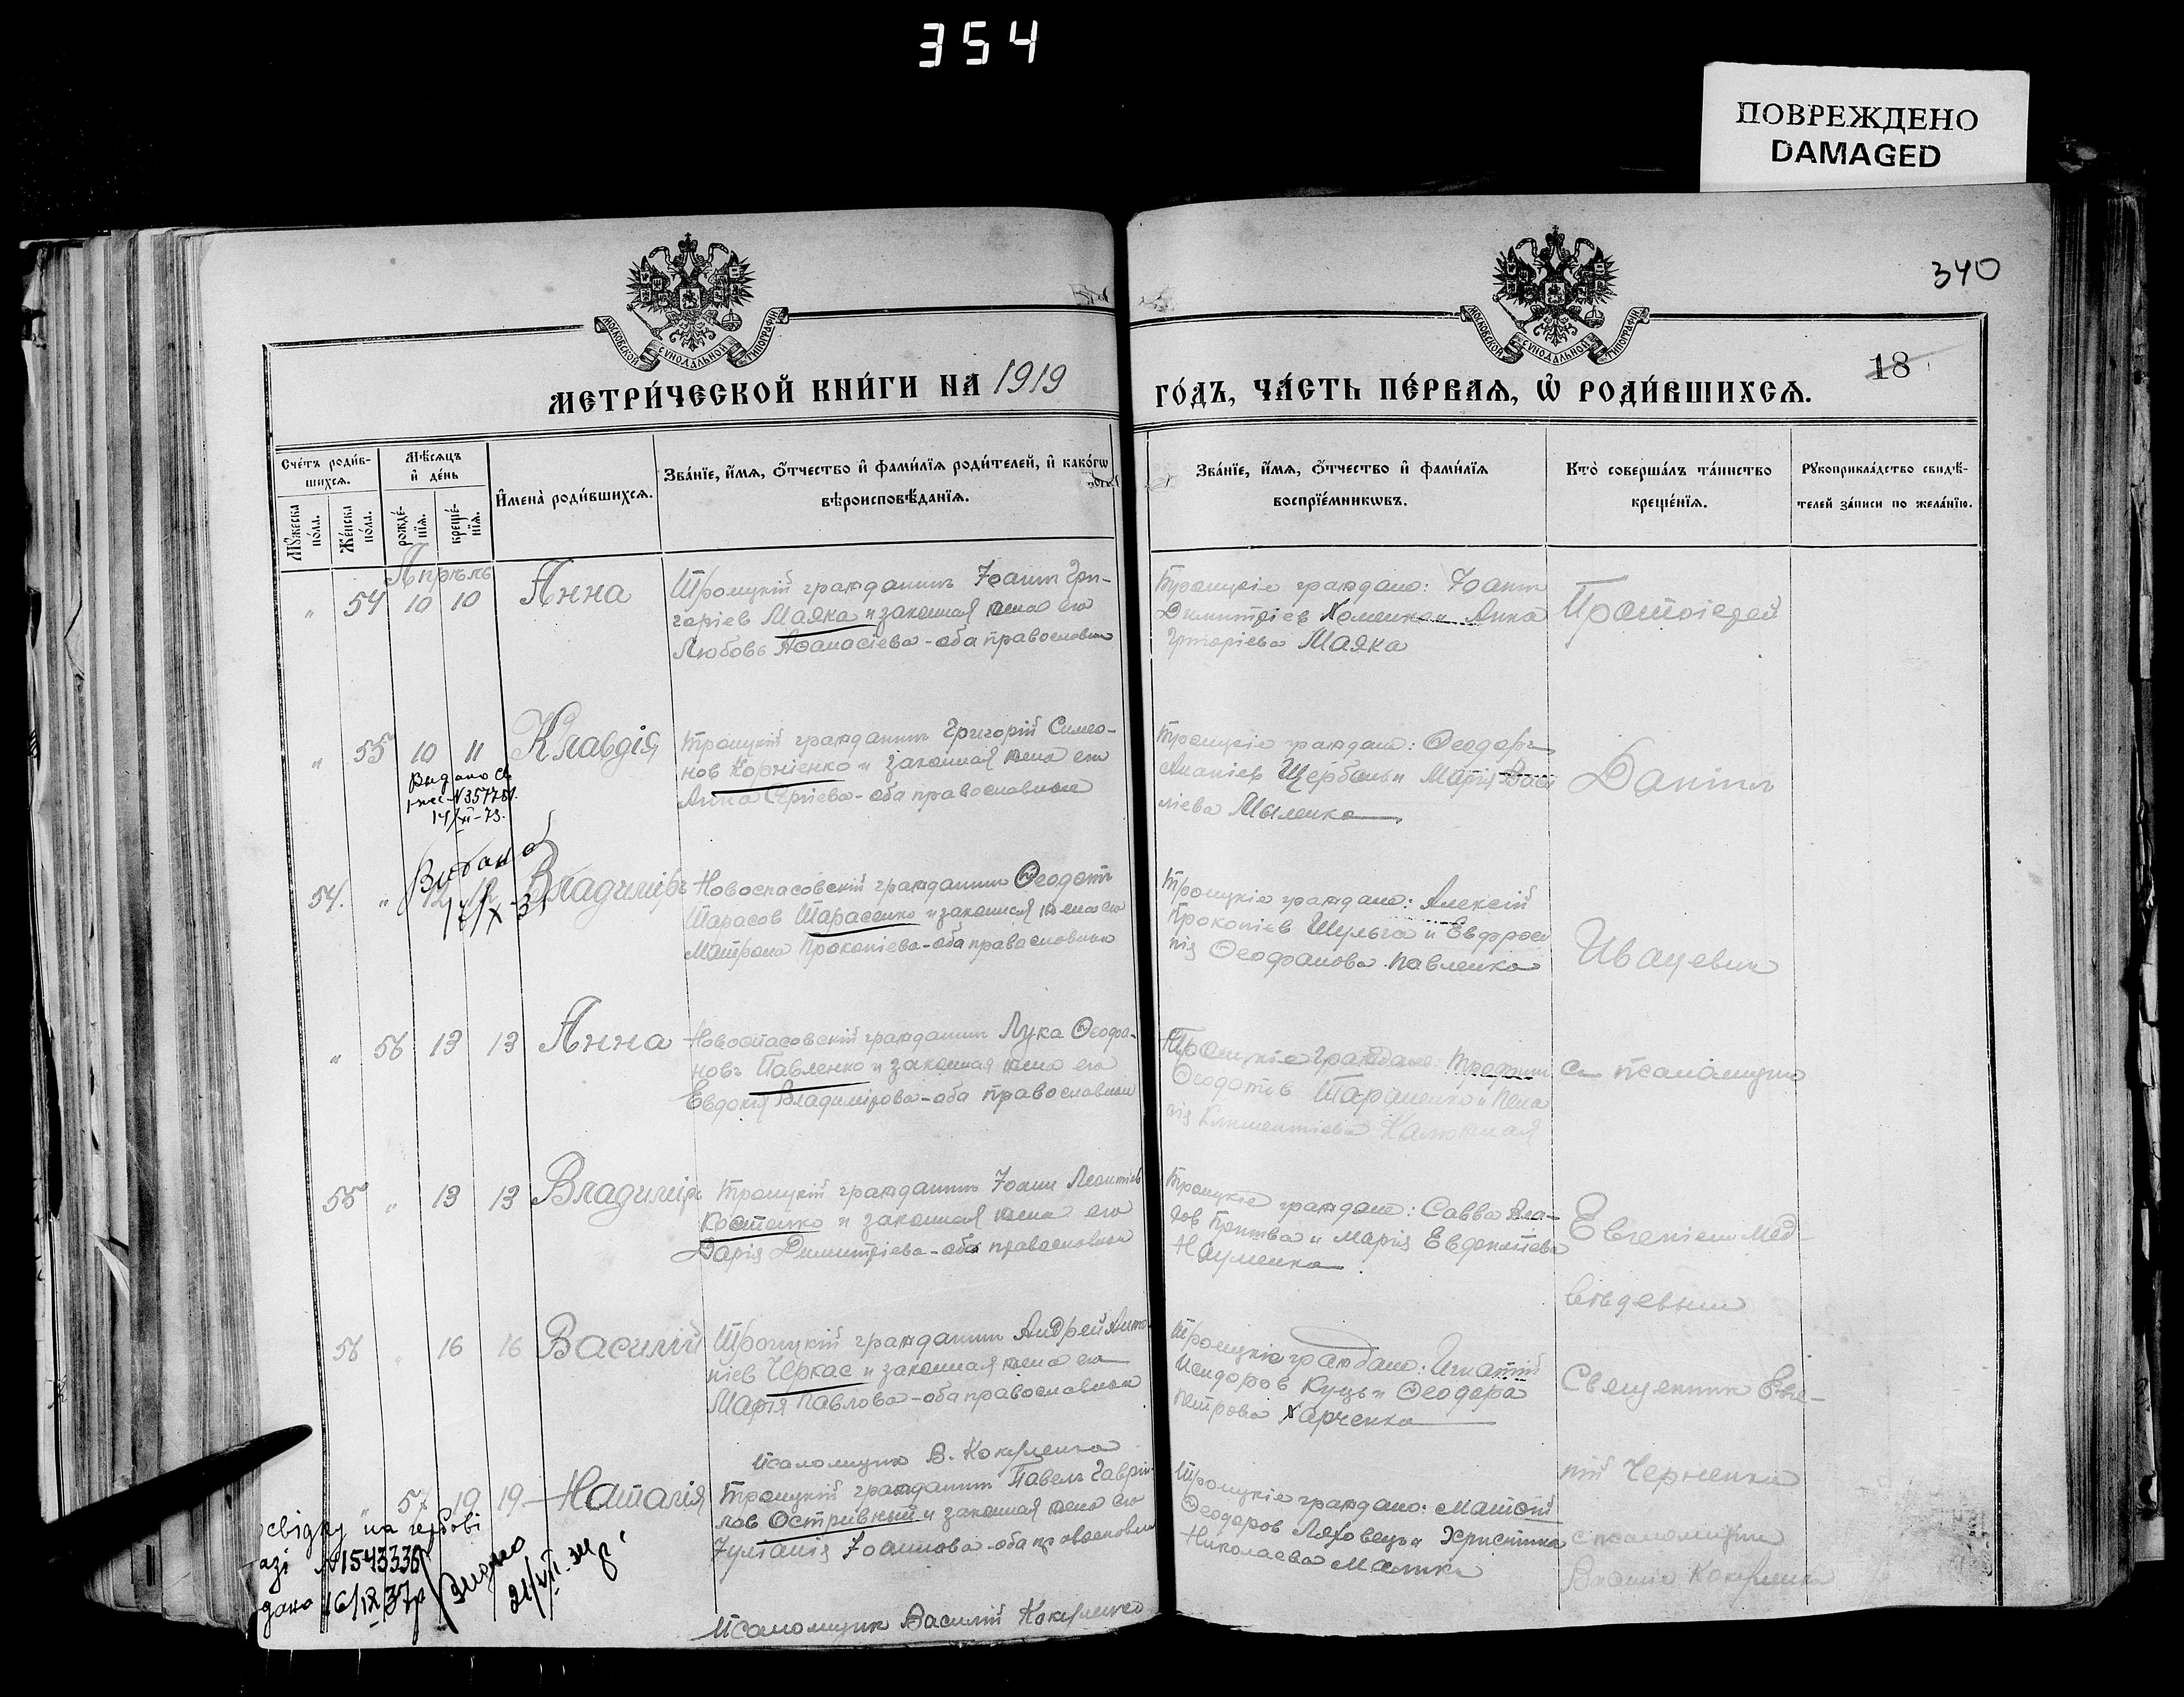 354
ПОВРЕЖДЕНО
DAMAGED
340
МОСКОВСКОЙ СѴНОДАЛЬНОЙ ТИПОГРАФІИ
МОСКОВСКОЙ СѴНОДАЛЬНОЙ ТИПОГРАФІИ
18
МЕТРИ́ЧЕСКОЙ КНИ́ГИ НА 1919
ГО́ДЪ, ЧА́СТЬ ПЕ́РВАѦ, Ѽ РОДИ́ВШИХСѦ.
Сче́тъ роди́в-
шихсѧ.
Мѣ́сѧцъ
и҆ де́нь
Мꙋжеска
по́ла.
Же́нска
по́ла.
рожде́-
нїѧ.
креще́-
нїѧ.
И҆мена̀ роди́вшихсѧ.
Зва́нїе, и҆́мѧ, ѻ҆́тчество и҆ фами́лїѧ роди́телей, и҆ како́гѡ
вѣроисповѣ́данїѧ.
Зва́нїе, и҆́мѧ, ѻ҆́тчество и҆ фами́лїѧ
воспрїе́мникѡвъ.
Кто̀ соверша́лъ та́инство
креще́нїѧ.
Рꙋкоприкла́дство свидѣ́-
телей за́писи по жела́нїю.
Апрѣль
" 54 10 10 Анна
Троицкій гражданинъ Іоаннъ Гри-
горіев Маяка и законная жена его
Любовь Афанасіева - оба православны
Троицкіе граждане: Іоаннъ
Димитріев Хоменко и Анна
Григоріева Маяка
Протоіерей
" 55 10 11 Клавдія
Троицкій гражданинъ Григорій Симео-
нов Корніенко и законная жена его
Анна Сергіева - оба православные
Троицкіе граждане: Ѳеодоръ
Ананіев Щербань и Марія Васи
ліева Мыленко
Даніилъ
Видано св
14/XI-73.
Видано
17/X-31
54. " 12 12 Владиміръ
Новоспасовскій гражданинъ Ѳеодотъ
Тарасов Тарасенко и законная жена его
Матрона Прокопіева - оба православны
Троицкіе граждане: Алексій
Прокопіев Шульга и Евфроси
нія Ѳеофанова Павленко
Ивацевич
" 56 13 13 Анна
Новоспасовскій гражданинъ Лука Ѳеофа-
новъ Павленко и законная жена его
Евдокія Владимірова - оба православны
Троицкіе граждане: Трофим
Ѳеодотів Тараненко и Пела
гія Климентіева Калюжная
с псаломщик
55 " 13 13 Владиміръ
Троицкій гражданинъ Іоанн Леонтіев
Костенко и законная жена его
Дарія Димитріева - оба православны
Троицкіе граждане: Савва Вла-
сов и Марія Евдокіева
Науменко
Евгеніем Мед-
вѣдевым
56 " 16 16 Василій
Троицкій гражданинъ Андрей Анто-
ніев Черкас и законная жена его
Марія Павлова - оба православны
Троицкіе граждане: Игнатій
Исидоров Куць и Ѳеодора
Петрова Харченко
Священник Евге-
ній Черненко
Псаломщик В.
" 57 19 19 Наталія
Троицкій гражданинъ Павелъ Гаврі-
лов Остривный и законная жена его
Іуліанія Іоаннова - оба православны
Троицкіе граждане: Матѳій
Ѳеодоров Ляховець и Христина
Николаева Малика
с псаломщик
довідку на гербові
азі №1543336
дано 16/IX 37р
Видано
21/VII 34 р.
Псаломщик Василій